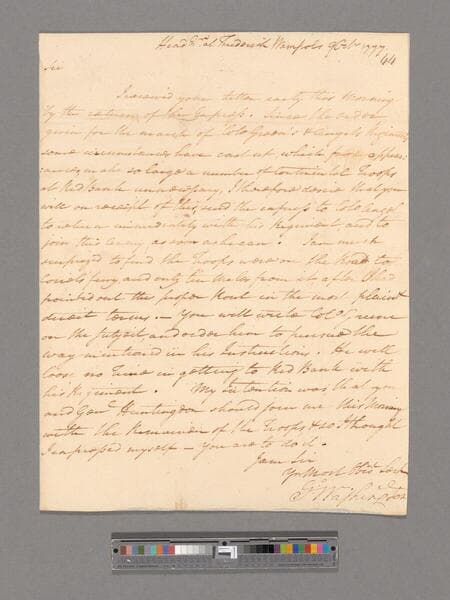 Head Qrs at Frederick Wampols 9 Octr 1777
44
Sir
I received your letter early this Morning
by the return of the Express. Since the order
given for the march of Colo Green's & Angels Regiments
some circumstances have cast up, which from appear-
ances, make so large a number of Continental Troops
at Red Bank unnecessary, I therefore desire that you
will on receipt of this, send the express to Colo Angel
to return immediately with his Regiment and to
join this Army as soon as he can. I am much
surprized to find the Troops were on the Road to
Coriels ferry and only ten Miles from it after I had
pointed out the proper Rout in the most plain &
direct terms — You will write Colo Greene
on the subject and order him to pursue the
way mentioned in his Instructions. He will
loose no Time in getting to Red Bank with
his Regiment. My intention was, that you
and Genl Huntingdon should join me this Morning
with the Remainder of the Troops & so I thought
I expressed myself — You are to do it.
I am Sir
Yr Most Obt Servt
Go Washington